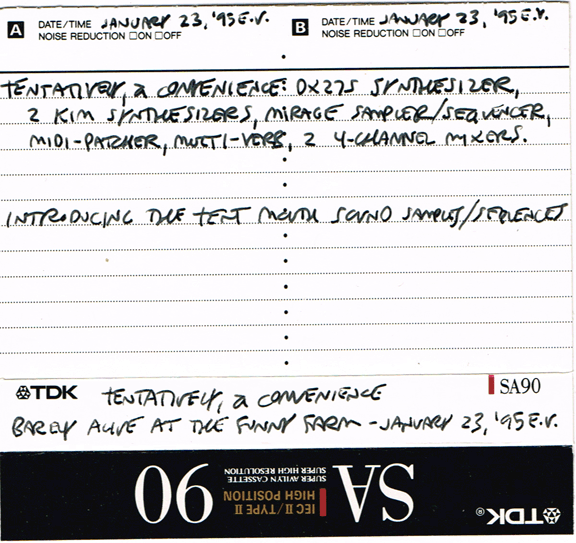 A DATE/TIME JANUARY 23, '95 E.V. B DATE/TIME JANUARY 23, '95 E.V.
NOISE REDUCTION □ON □OFF NOISE REDUCTION □ON □OFF
TENTATIVELY, a CONVENIENCE: DX27S SYNTHESIZER,
2 KIM SYNTHESIZERS, MIRAGE SAMPLER/SEQUENCER,
MIDI-PATCHER, MULTI-VERB, 2 4-CHANNEL MIXERS.
INTRODUCING THE TENT MOUTH SOUND SAMPLES/SEQUENCES
TDK TENTATIVELY, a CONVENIENCE SA90
BARELY ALIVE AT THE FUNNY FARM - JANUARY 23, '95 E.V.
TDK® SA IEC II/TYPE II
HIGH POSITION
SUPER AVILYN CASSETTE
SUPER HIGH RESOLUTION 90